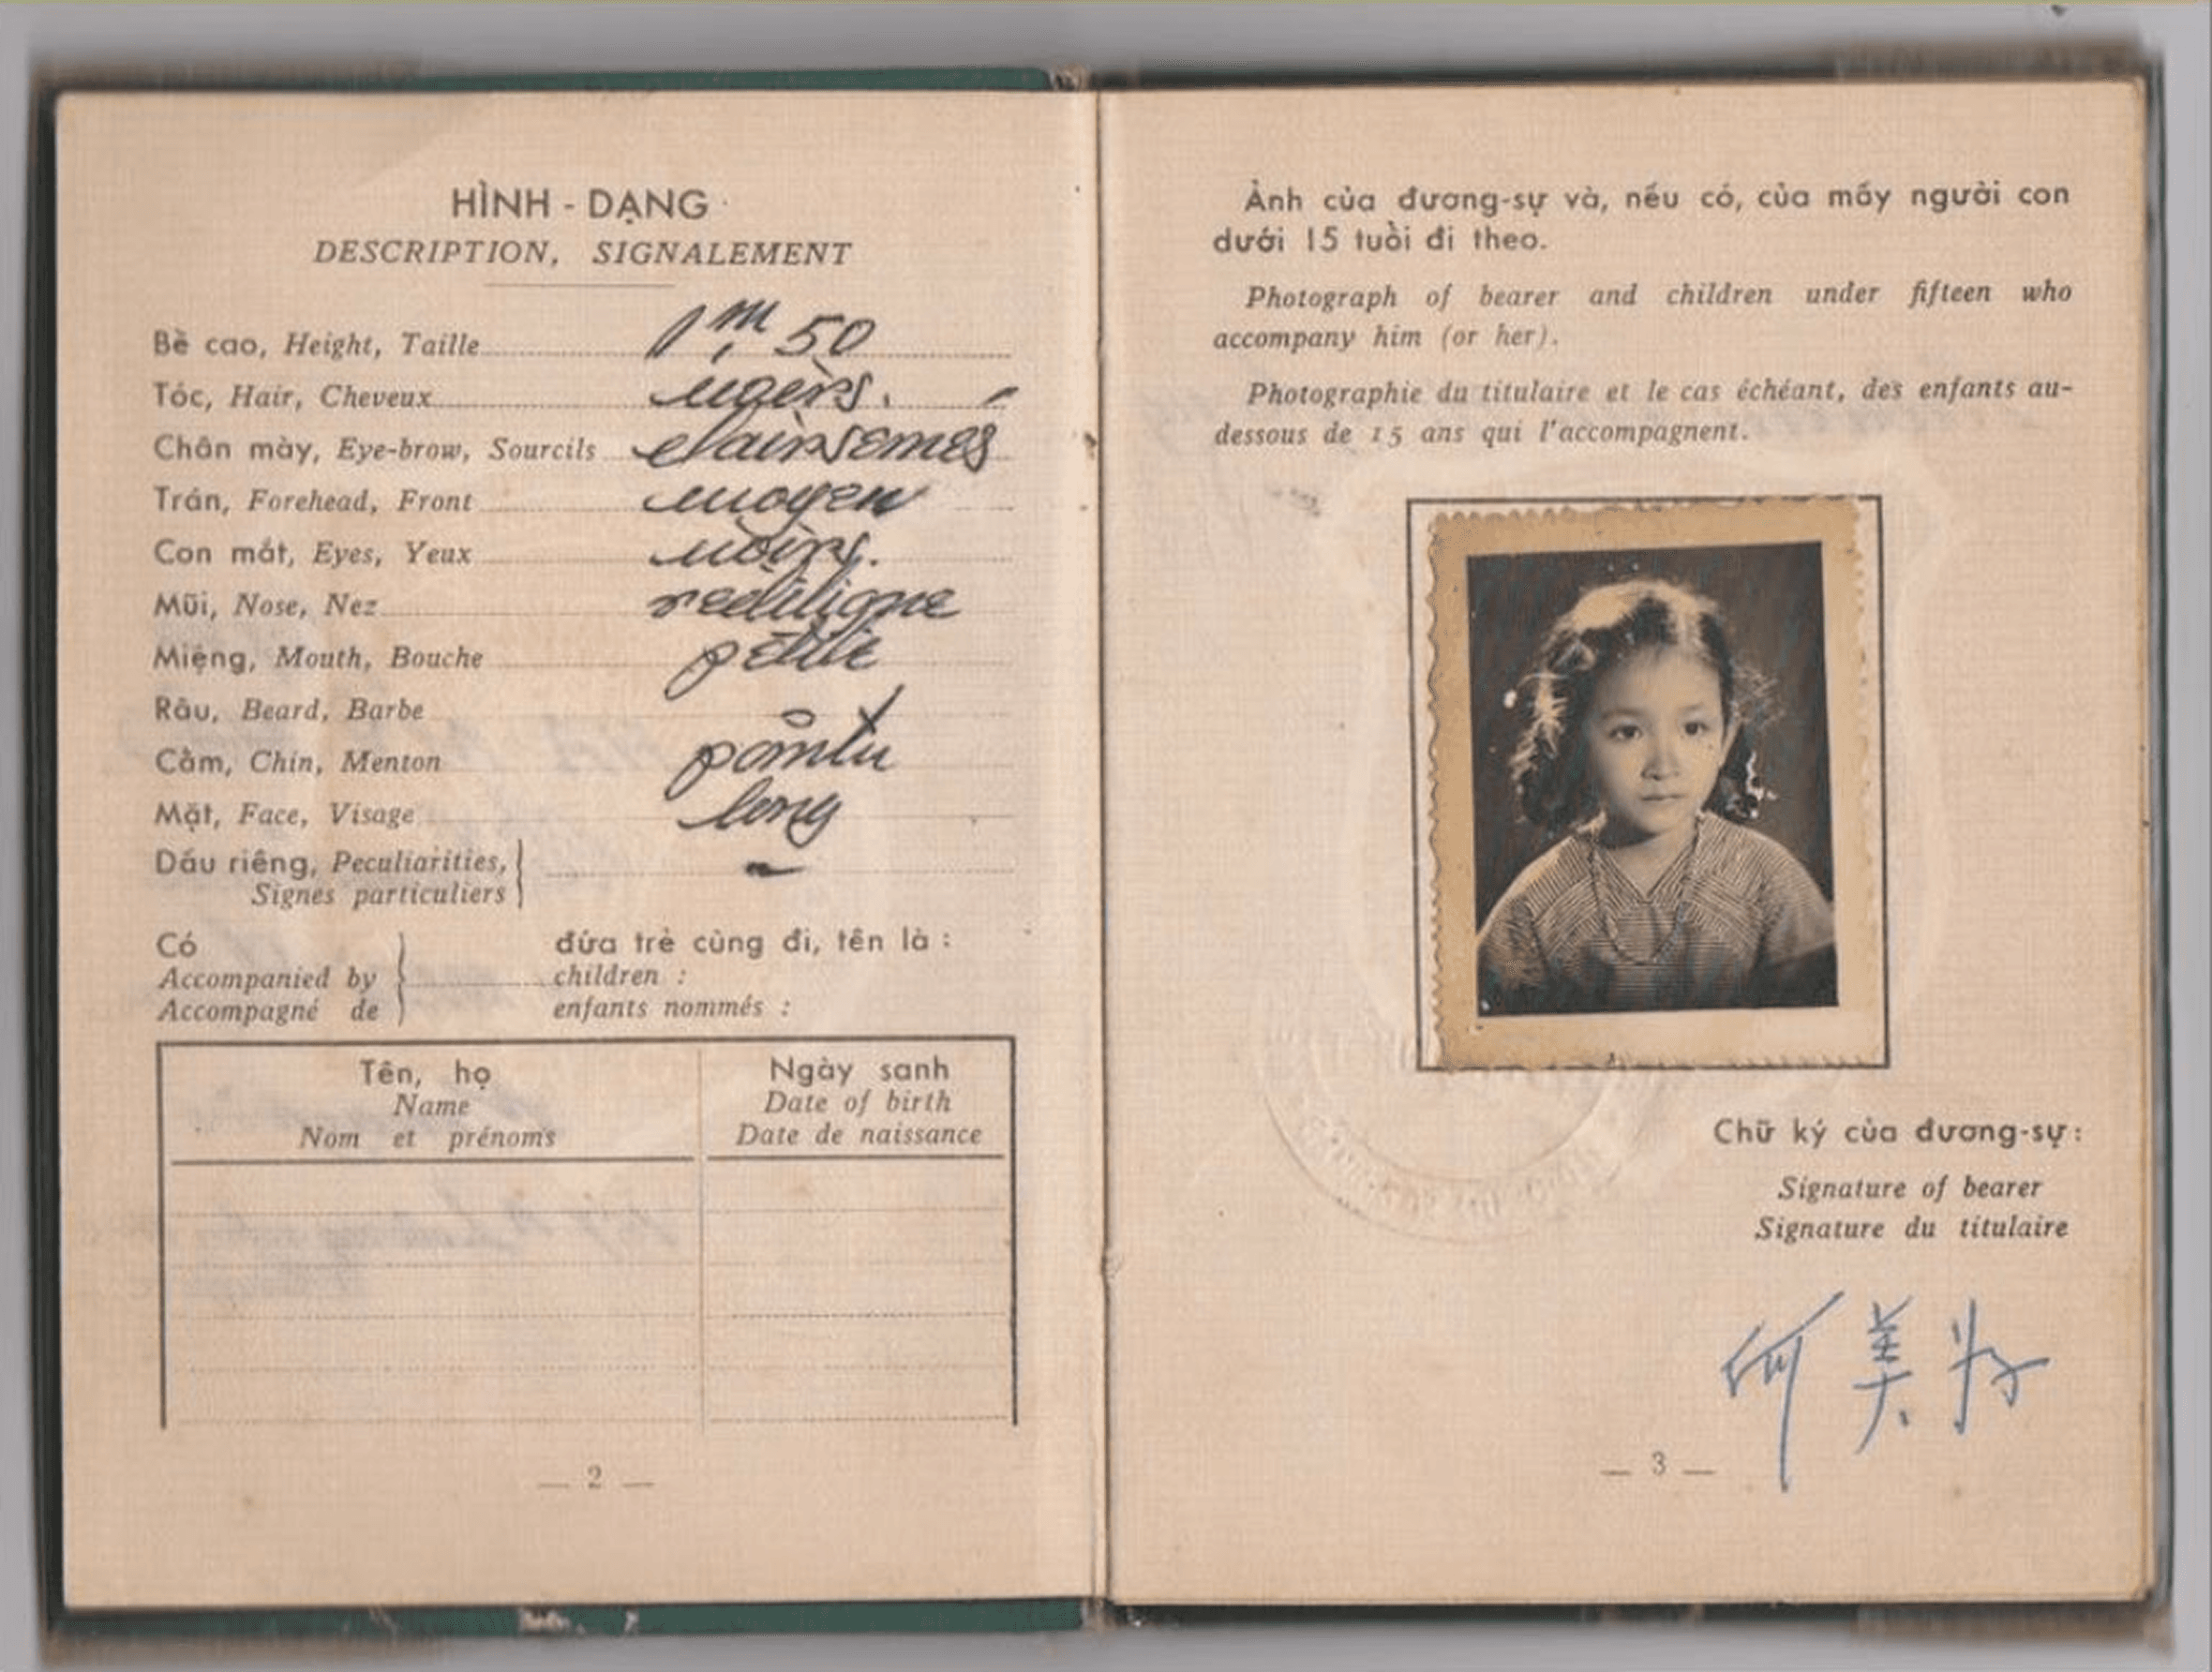 HÌNH - DẠNG
DESCRIPTION, SIGNALEMENT
Bề cao, Height, Taille 1m,50
Tóc, Hair, Cheveux noirs.
Chân mày, Eye-brow, Sourcils clairsemés
Trán, Forehead, Front moyen
Con mắt, Eyes, Yeux noirs.
Mũi, Nose, Nez rectiligne
Miệng, Mouth, Bouche petite
Râu, Beard, Barbe
Cằm, Chin, Menton pointu
Mặt, Face, Visage long
Dấu riêng, Peculiarities, —
Signes particuliers
Có đứa trẻ cùng đi, tên là :
Accompanied by children :
Accompagné de enfants nommés :
Tên, họ Ngày sanh
Name Date of birth
Nom et prénoms Date de naissance
— 2 —
Ảnh của đương-sự và, nếu có, của mấy người con
dưới 15 tuổi đi theo.
Photograph of bearer and children under fifteen who
accompany him (or her).
Photographie du titulaire et le cas échéant, des enfants au-
dessous de 15 ans qui l'accompagnent.
Chữ ký của đương-sự :
Signature of bearer
Signature du titulaire
何美
— 3 —